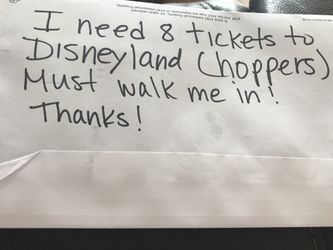 I need 8 tickets to
Disneyland (hoppers)
Must walk me in!
Thanks!